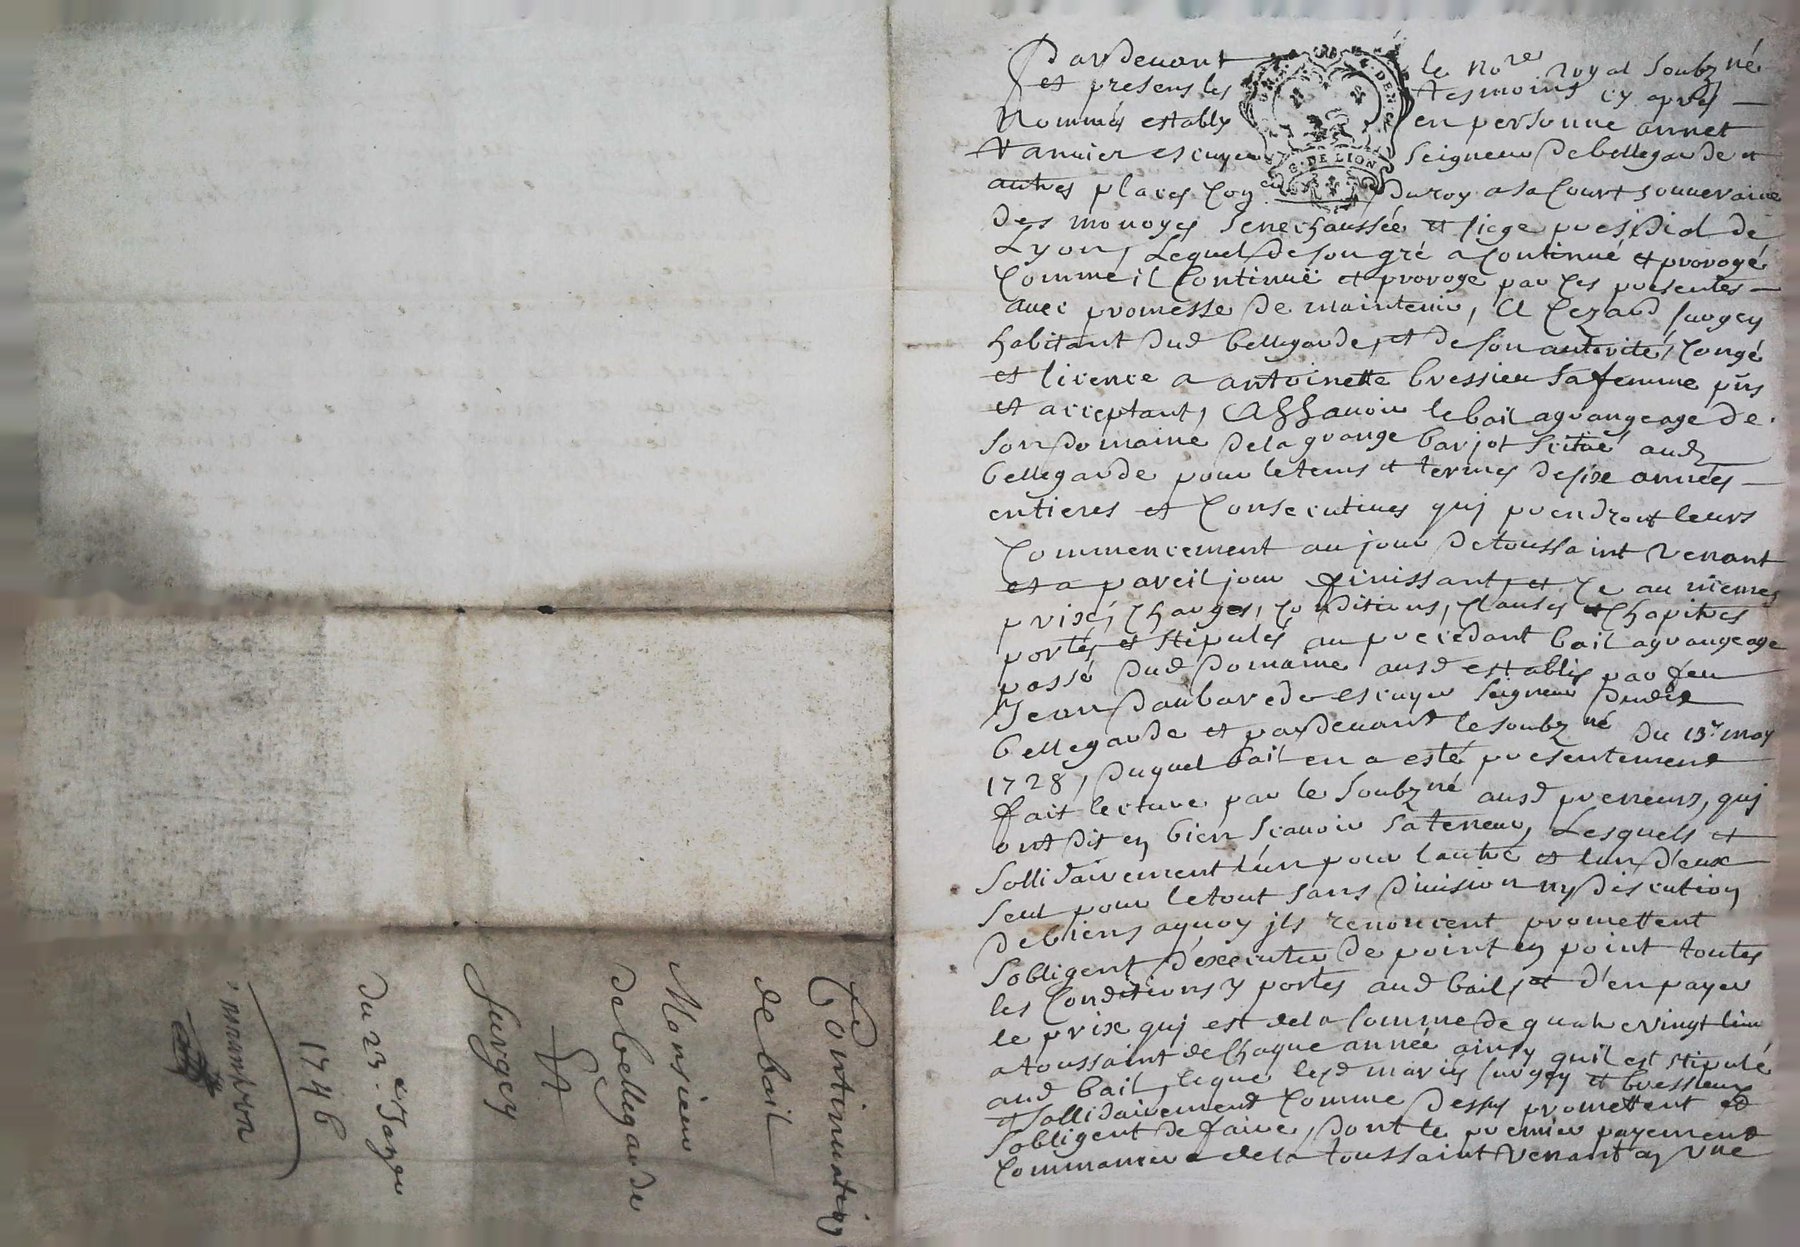 Continuation
de bail
Monsieur
de bellegarde
A
Surgey
du 23.e Janer
1746
Pardevant le Nore royal soubzné
et presens les tesmoins cy apres
Nommés estably en personne annet
Vannier escuyer seigneur de bellegarde et
autres places Coner du roy a la Court souveraine
des monoyes senechaussée et siege presidial de
Lyon, Lequel de son gré a Continué et prorogé
Comme il Continuë et proroge par Ces presentes
avec promesse de maintenir, A Cezard surgey
habitant dud bellegarde, et de son autorité, Congé
et licence a antoinette bressieu sa femme pns
et acceptant, Assavoir le bail a grangeage de
son domaine de la grange barjot scitué aud
bellegarde pour le tems et termes de six années
entieres et Consecutives quj prendront leurs
Commencement au jour de toussaint venant
et a pareil jour finissant, et Ce au mêmes
prix, Charges, Conditions, Clauses et Chapitres
portés et stipulés au precedant bail a grangeage
passé dud domaine ausd establis par feu
Jean daubarede escuyer seigneur dudit
bellegarde et pardevant le soubzné du 13. may
1728, duquel bail en a esté presentement
fait lecture par le soubzné ausd preneurs, quj
ont dit en bien scavoir sa teneur, Lesquels et
sollidairement lun pour lautre et lun d'eux
seul pour le tout sans division ny discution
de biens aquoy jls renoncent promettent
sobligent d'executer de point en point toutes
les Conditions y portés aud bail, et d'en payer
le prix quj est de la somme de quatre vingt liv
a toussaint de Chaque année ainsy quil est stipulé
aud bail, leque lesd mariés surgey et bressieux
et sollidairement Comme dessus promettent et
sobligent de faire, dont le premier payement
Commancer a de la toussaint venant en une
G. DE LION